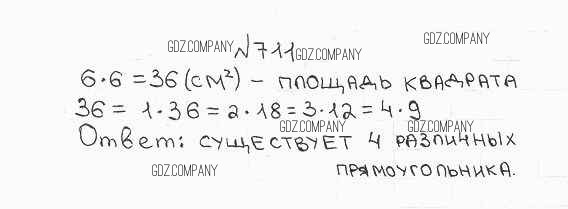 №711
6·6=36(см²) – площадь квадрата
36 = 1·36=2·18=3·12=4·9
Ответ: существует 4 различных
прямоугольника.
GDZ.COMPANY
GDZ.COMPANY
GDZ.COMPANY
GDZ.COMPANY
GDZ.COMPANY
GDZ.COMPANY